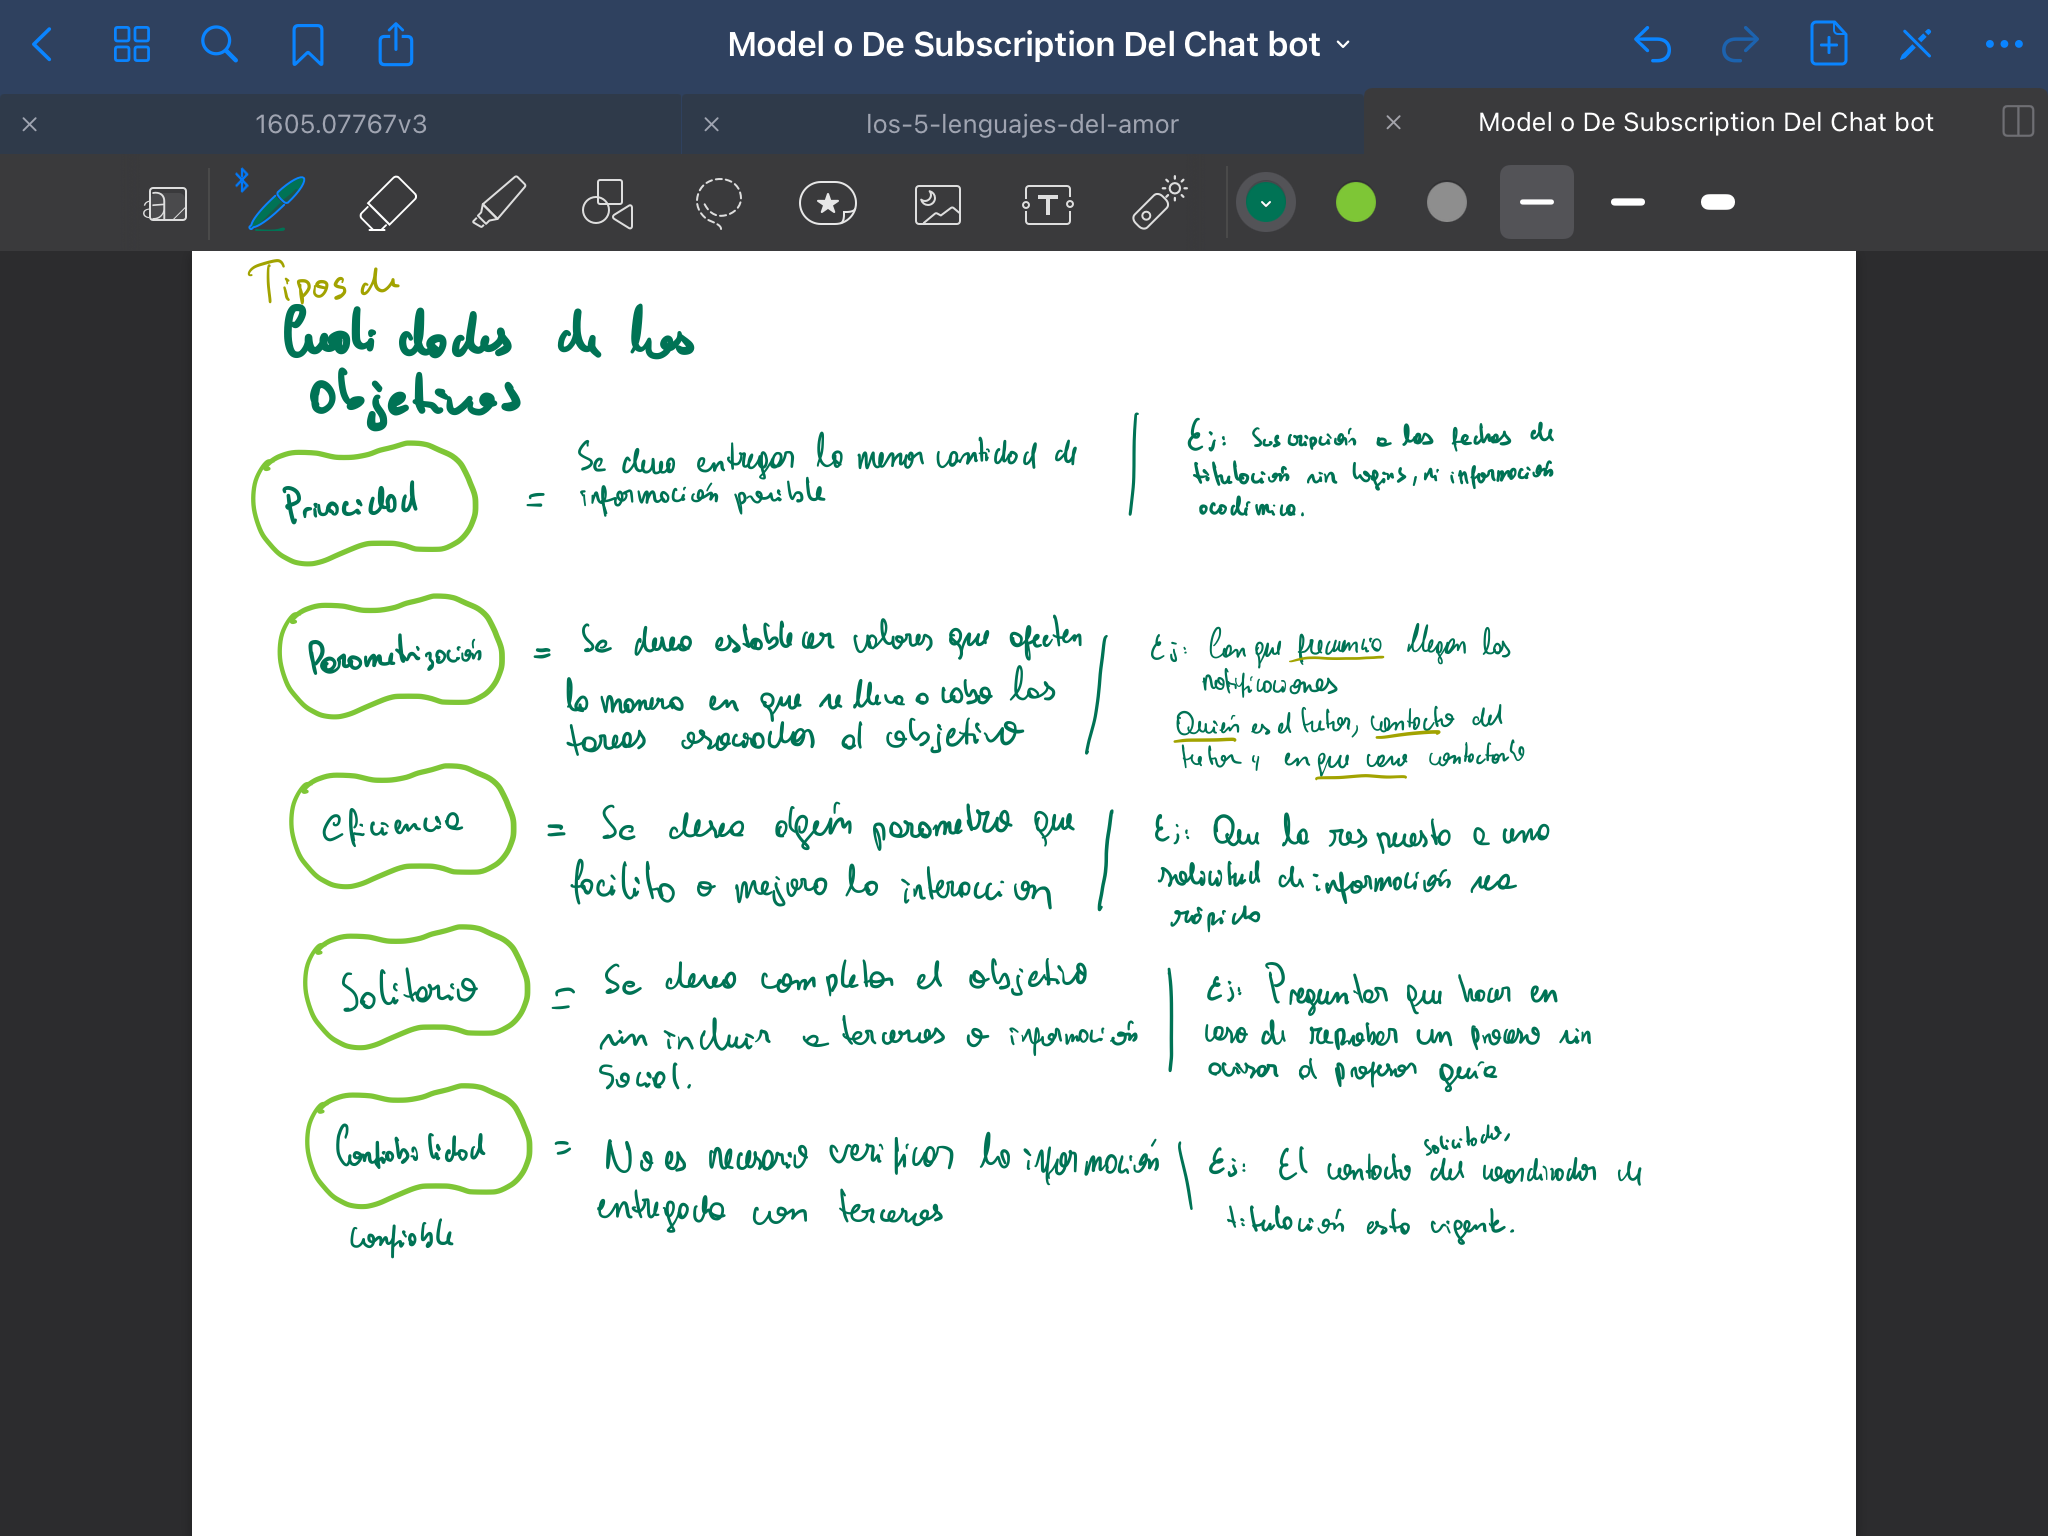 Model o De Subscription Del Chat bot
1605.07767v3
los-5-lenguajes-del-amor
Model o De Subscription Del Chat bot
Tipos de
Cualidades de los
objetivos
Privacidad
= Se desea entregar la menor cantidad de
información posible
Ej: Suscripción a las fechas de
titulación sin logins, ni información
académica.
Parametrización
= Se desea establecer valores que afecten
la manera en que se lleva a cabo las
tareas asociadas al objetivo
Ej: Con que frecuencia llegan las
notificaciones
Quién es el tutor, contacto del
tutor y en que caso contactarlo
Eficiencia
= Se desea algún parametro que
facilita o mejora la interaccion
Ej: Que la respuesta a una
solicitud de información sea
rápida
Solitario
= Se desea completar el objetivo
sin incluir a terceros o información
social.
Ej: Preguntar que hacer en
caso de reprobar un proceso sin
avisar al profesor guía
Confiabilidad
= No es necesario verificar la información
entregada con terceros
Ej: El contacto solicitado, del coordinador de
titulación esta vigente.
confiable